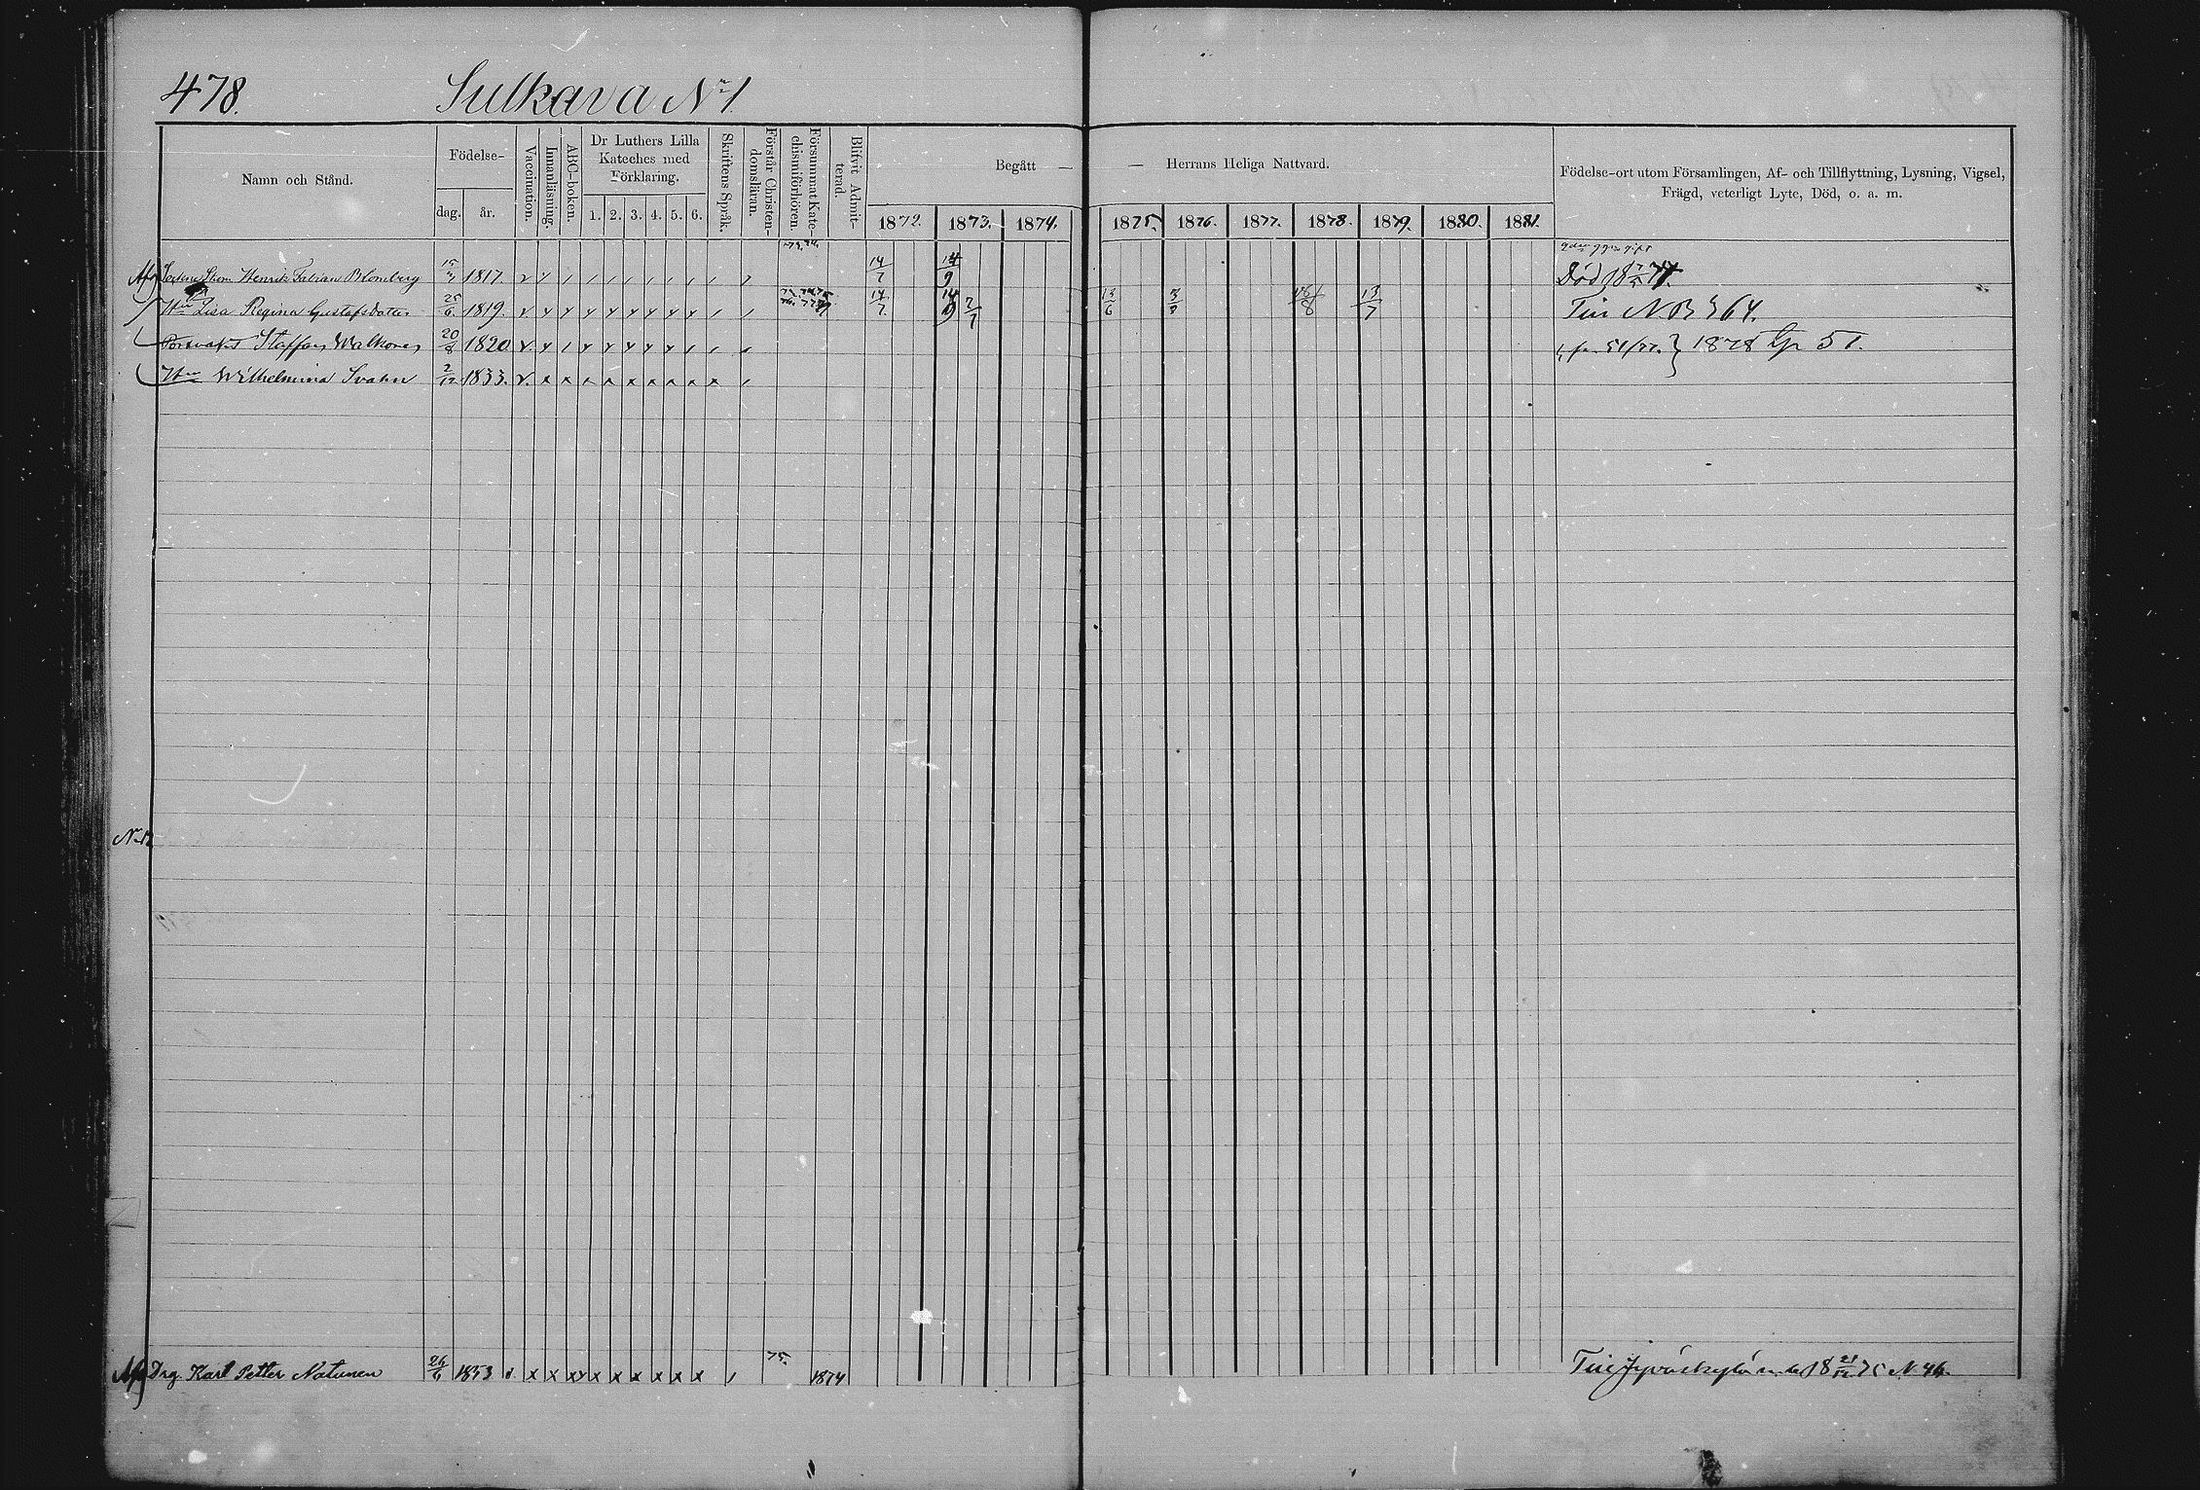 478. Sulkava No 1
Namn och Stånd.
Födelse-
dag.
år.
Vaccination.
Innanläsning.
ABC-boken.
Dr Luthers Lilla
Kateches med
Förklaring.
1. 2. 3. 4. 5. 6.
Skriftens Språk.
Förstår Christen-
domsläran.
Försummat Kate-
chismiförhören.
Blifvit Admit-
terad.
Begått — — Herrans Heliga Nattvard.
1872. 1873. 1874. 1875. 1876. 1877. 1878. 1879. 1880. 1881.
Födelse-ort utom Församlingen, Af- och Tillflyttning, Lysning, Vigsel,
Frägd, veterligt Lyte, Död, o. a. m.
Henrik Fabian Blomberg 15/3 1817. 14/7 14/9 Död
Hu Lisa Regina Gustafsdotter 25/6 1819. 14/7 14/9 2/7 13/6 13/7 64.
Staffan Walkonen 20/8 1820 51/77. } 1878 51.
Hu Wilhelmina Svahn 2/12 1833.
Drg. Karl Petter Natunen 26/6 1853 75. 1874 Jyväskylä 18 21/12 75 N 46.